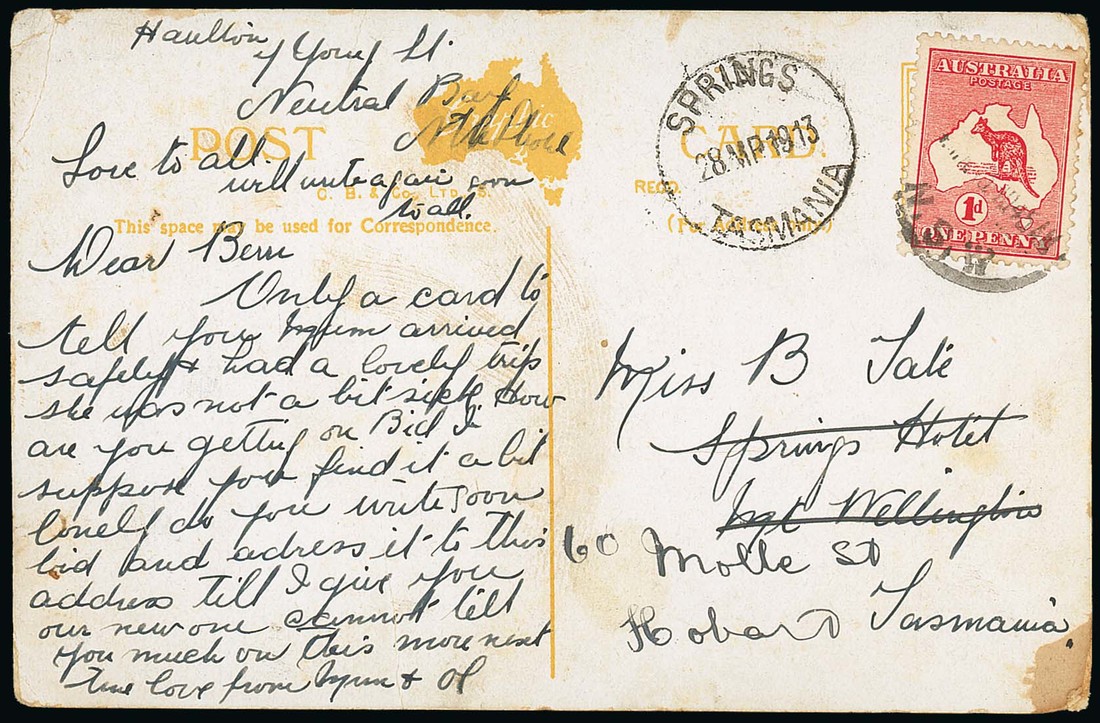 Haulton
Yong St
Neutral Bay
Nth Shore
POST CARD.
Love to all.
will write again soon
to all.
C. B. & Co. LTD. S.
REGD.
This space may be used for Correspondence.
(For Address only)
Dear Bern
Only a card to
tell you Mum arrived
safely & had a lovely trip
she was not a bit sick How
are you getting on Bid I
suppose you find it a bit
lonely do you write soon
bid and adress it to this
address till I give you
our new one cannot tell
you much on this more next
time love from Mum & Ol
SPRINGS
28.MR1913
TASMANIA
AUSTRALIA
POSTAGE
1d
ONE PENNY
N.S.W
Miss B Tate
Springs Hotel
Mt Wellington
60 Molle St
Hobart Tasmania